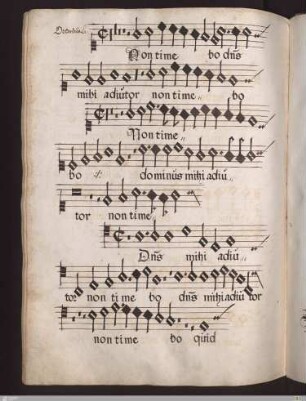 Non time bo dn̄s
mihi adiutor non time bo
Non time
bo dominus mihi adiu
tor non time
Dn̄s mihi adiu
tor non time bo dn̄s mihi adiu tor
non time bo quid